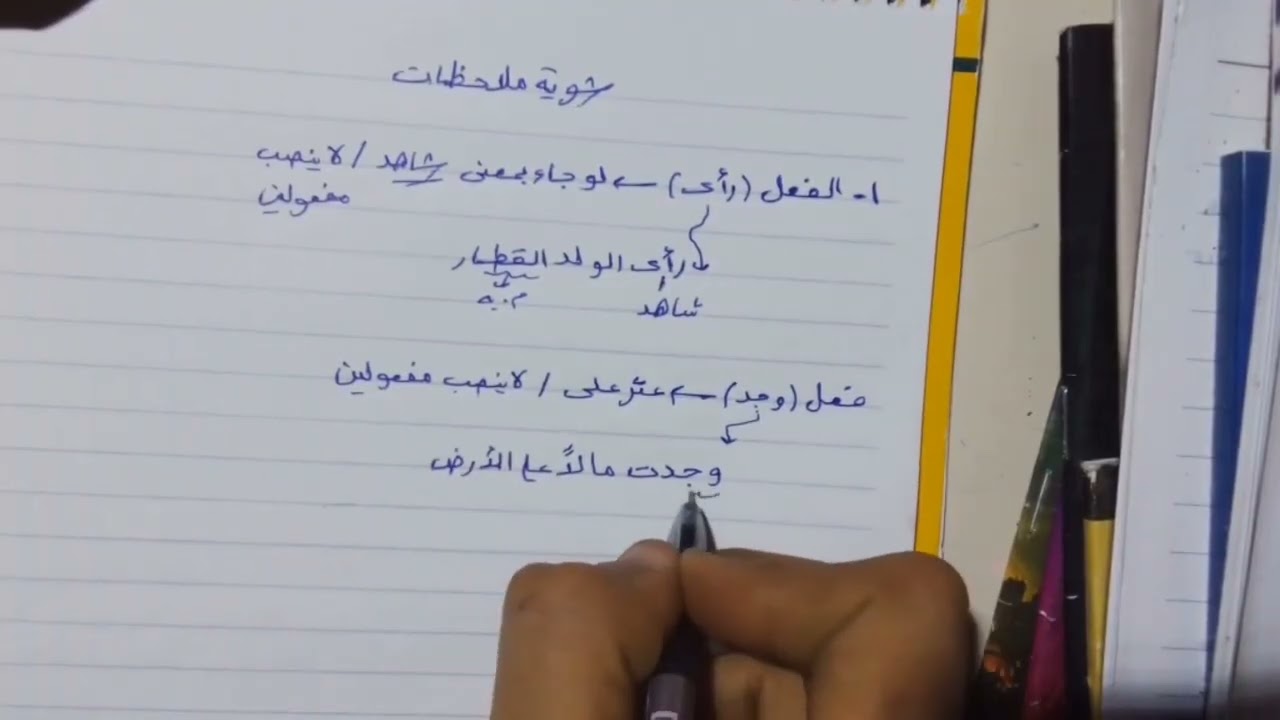 شوية ملاحظات
١- الفعل (رأى) ← لو جاء بمعنى شاهد / لا ينصب
مفعولين
رأى الولد القطار
شاهد م. به
فعل (وجد) ← عثر على / لا ينصب مفعولين
وجدت مالاً على الأرض